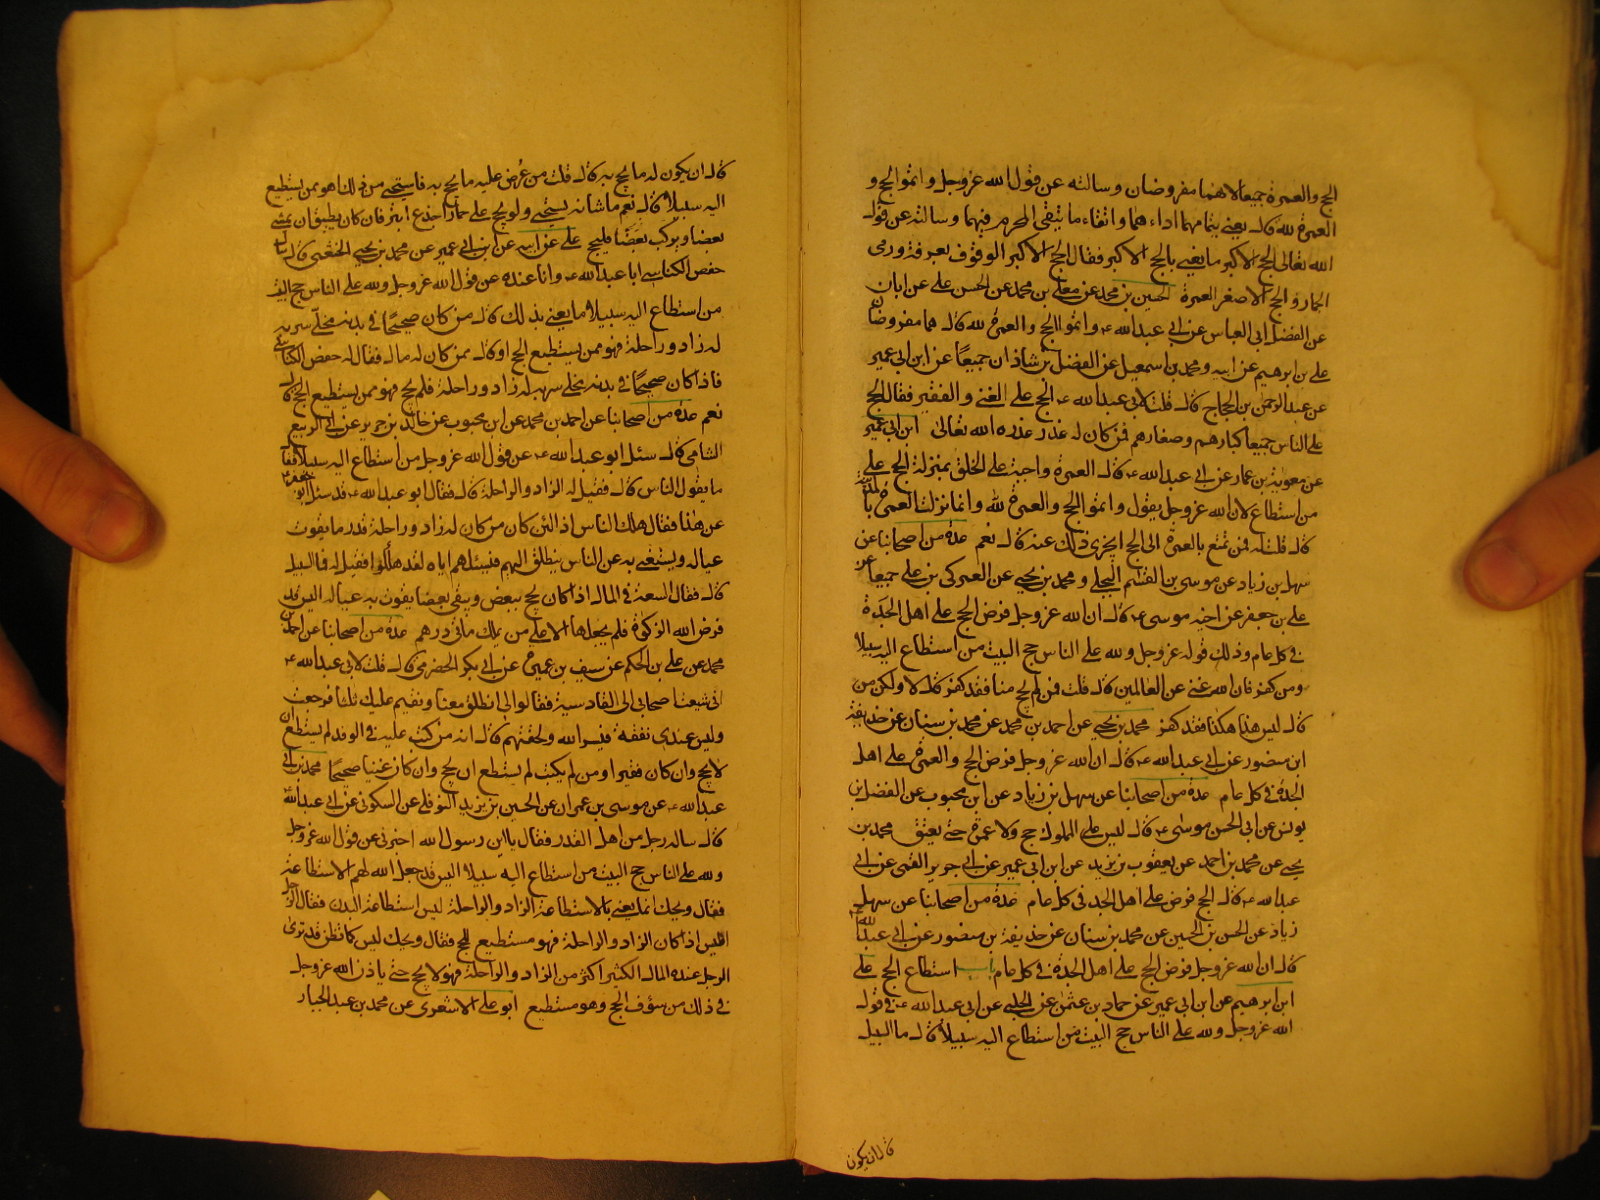 الحج والعمرة جميعا لانهما مفروضان وسالته عن قول الله عزوجل واتموا الحج و
العمرة لله قال يعني بتمامهما اداءهما واتقاء ما يتقي المحرم فيهما وسالته عن قول
الله تعالى الحج الاكبر ما يعني بالحج الاكبر فقال الحج الاكبر الوقوف بعرفة ورمي
الجمار والحج الاصغر العمرة الحسين بن محمد عن معلى بن محمد عن الحسن علي عن ابان
عن الفضل ابي العباس عن ابي عبدالله ع واتموا الحج والعمرة لله قال هما مفروضان
علي بن ابرهيم عن ابيه ومحمد بن اسمعيل عن الفضل بن شاذان جميعا عن ابن ابي عمير
عن عبدالرحمن بن الحجاج قال قلت لابي عبدالله ع الحج على الغني والفقير فقال الحج
على الناس جميعا كبارهم وصغارهم فمن كان له عذر عذره الله تعالى ابن ابي عمير
عن معوية بن عمار عن ابي عبدالله ع قال العمرة واجبة على الخلق بمنزلة الحج على
من استطاع لان الله عزوجل يقول واتموا الحج والعمرة لله وانما نزلت العمرة بالمدينة
قال قلت له فمن تمتع بالعمرة الى الحج ايجزي ذلك عنه قال نعم عدة من اصحابنا عن
سهل بن زياد عن موسى بن القسم البجلي ومحمد بن يحيى عن العمركي بن علي جميعا عن
علي بن جعفر عن اخيه موسى ع قال ان الله عزوجل فرض الحج على اهل الجدة
في كل عام وذلك قوله عزوجل ولله على الناس حج البيت من استطاع اليه سبيلا
ومن كفر فان الله غني عن العالمين قال قلت فمن لم يحج منا فقد كفر قال لا ولكن من
قال ليس هذا هكذا فقد كفر محمد بن يحيى عن احمد بن محمد عن محمد بن سنان عن حذيفة
ابن منصور عن ابي عبدالله ع قال ان الله عزوجل فرض الحج والعمرة على اهل
الجدة في كل عام عدة من اصحابنا عن سهل بن زياد عن ابن محبوب عن الفضل بن
يونس عن ابي الحسن موسى ع قال ليس على المملوك حج ولا عمرة حتى يعتق محمد بن
يحيى عن محمد بن احمد عن يعقوب بن يزيد عن ابن ابي عمير عن ابي جرير القمي عن ابي
عبدالله ع قال الحج فرض على اهل الجدة في كل عام عدة من اصحابنا عن سهل
زياد عن الحسن بن الحسين عن محمد بن سنان عن حذيفة بن منصور عن ابي عبدالله ع
قال ان الله عزوجل فرض الحج على اهل الجدة في كل عام باب استطاع الحج علي
ابن ابرهيم عن ابن ابي عمير عن حماد بن عثمن عن الحلبي عن ابي عبدالله ع في قوله
الله عزوجل ولله على الناس حج البيت من استطاع اليه سبيلا قال ما السبيل
قال ان يكون
قال ان يكون له ما يحج به قال قلت من عرض عليه ما يحج به فاستحيى من ذلك اهو ممن يستطيع
اليه سبيلا قال نعم ما شانه يستحيي ولو يحج على حمار اجدع ابتر فان كان يطيق ان يمشي
بعضا ويركب بعضا فليحج علي عن ابيه عن ابن ابي عمير عن محمد بن يحيى الخثعمي قال سال
حفص الكناسي ابا عبدالله ع وانا عنده عن قول الله عزوجل ولله على الناس حج البيت
من استطاع اليه سبيلا ما يعني بذلك قال من كان صحيحا في بدنه مخلى سربه
له زاد وراحلة فهو ممن يستطيع الحج او قال ممن كان له مال فقال له حفص الكناسي
فاذا كان صحيحا في بدنه مخلى سربه له زاد وراحلة فلم يحج فهو ممن يستطيع الحج قال
نعم عدة من اصحابنا عن احمد بن محمد عن ابن محبوب عن خالد بن جرير عن ابي الربيع
الشامي قال سئل ابو عبدالله ع عن قول الله عزوجل من استطاع اليه سبيلا فقال
ما يقول الناس قال فقيل له الزاد والراحلة قال فقال ابو عبدالله ع قد سئل ابو جعفر ع
عن هذا فقال هلك الناس اذا لئن كان من كان له زاد وراحلة قدر ما يقوت
عياله ويستغني به عن الناس ينطلق اليهم فيسئلهم اياه لقد هلكوا فقيل له فما السبيل
قال فقال السعة في المال اذا كان يحج ببعض ويبقي بعضا يقوت به عياله اليس قد
فرض الله الزكوة فلم يجعلها الا على من يملك مائتي درهم عدة من اصحابنا عن احمد بن
محمد عن علي بن الحكم عن سيف بن عميرة عن ابي بكر الحضرمي قال قلت لابي عبدالله ع
اني شيعت اصحابي الى القادسية فقالوا لي انطلق معنا ونقيم عليك ثلثا فرجعت
وليس عندي نفقة فيسر الله ولحقتهم قال انه من كتب عليه في الوفد لم يستطع ان
لا يحج وان كان فقيرا ومن لم يكتب لم يستطع ان يحج وان كان غنيا صحيحا محمد بن ابي
عبدالله ع عن موسى بن عمران عن الحسين بن يزيد النوفلي عن السكوني عن ابي عبدالله
قال ساله رجل من اهل القدر فقال يا ابن رسول الله اخبرني عن قول الله عزوجل
ولله على الناس حج البيت من استطاع اليه سبيلا اليس قد جعل الله لهم الاستطاعة
فقال ويحك انما يعني بالاستطاعة الزاد والراحلة ليس استطاعة البدن فقال الرجل
افليس اذا كان الزاد والراحلة فهو مستطيع للحج فقال ويحك ليس كما تظن قد ترى
الرجل عنده المال الكثير اكثر من الزاد والراحلة فهو لا يحج حتى ياذن الله عزوجل
في ذلك من سوف الحج وهو مستطيع ابو علي الاشعري عن محمد بن عبدالجبار